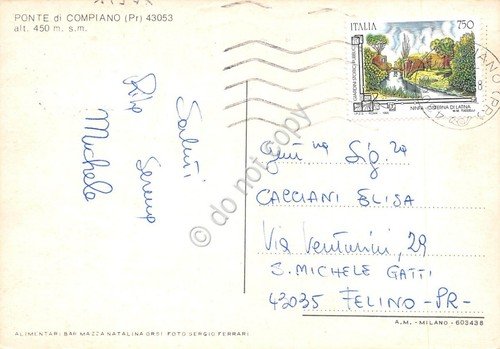 PONTE di COMPIANO (Pr) 43053
alt. 450 m. s.m.
ITALIA 750
GIARDINI STORICI PUBBLICI
NINFA-CISTERNA DI LATINA
Saluti
Rita Serena
Michele
Gen.ma Sig.ra
CACCIANI ELISA
Via Venturini, 29
S. MICHELE GATTI
43035 FELINO -PR-
© do not copy
ALIMENTARI BAR MAZZA NATALINA ORSI FOTO SERGIO FERRARI
A.M. - MILANO - 603438